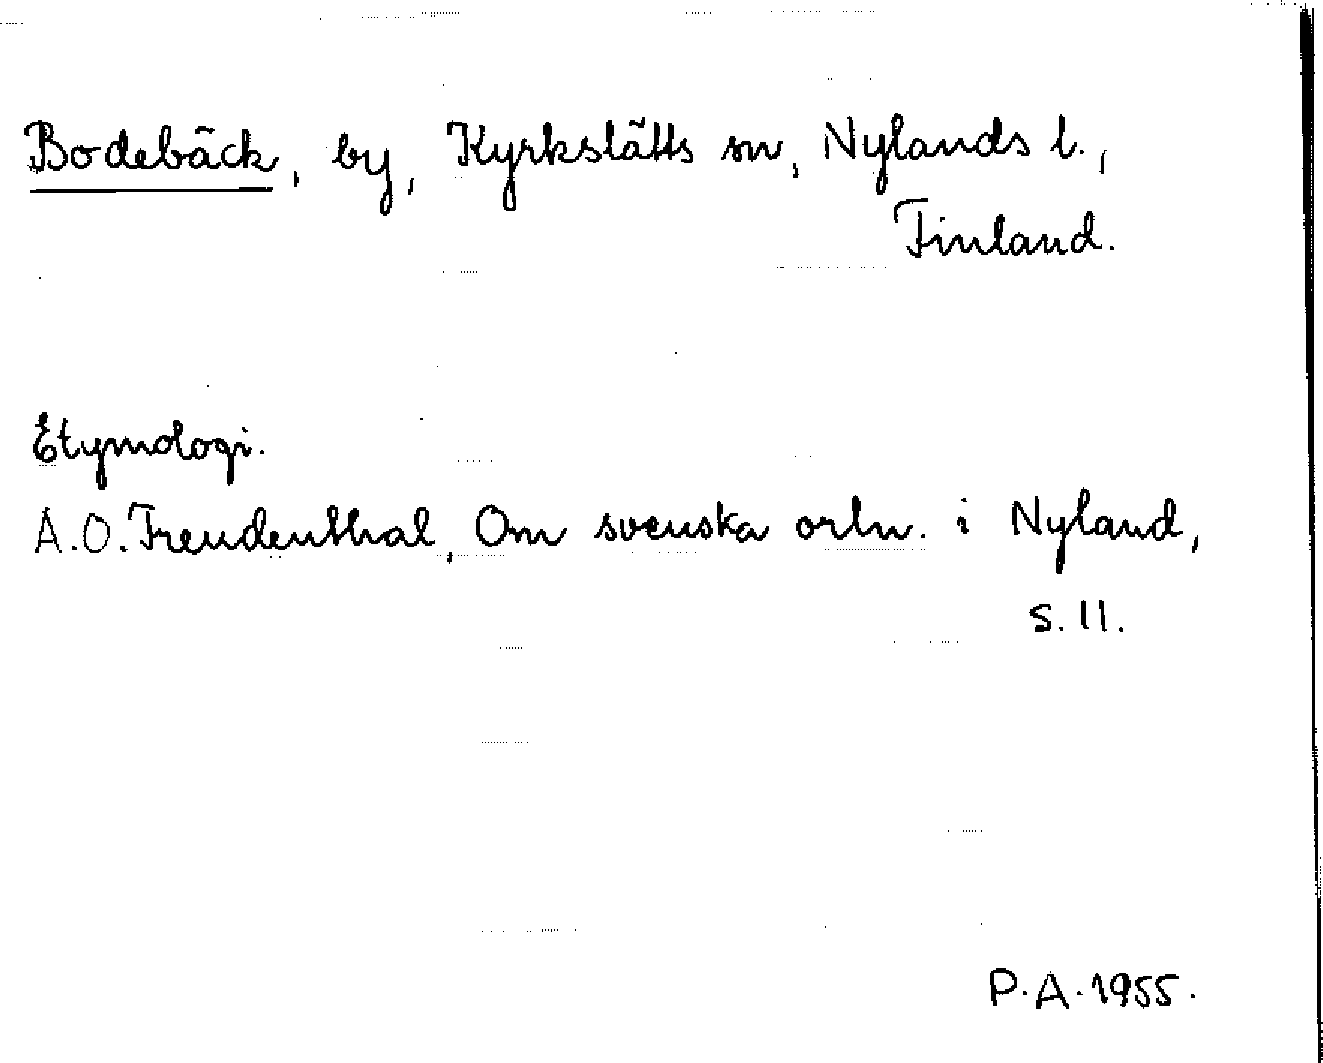 Bodebäck, by, Kyrkslätts sn, Nylands l.,
Finland.
Etymologi.
A.O. Freudenthal, Om svenska ortn. i Nyland,
s. 11.
P.A. 1955.